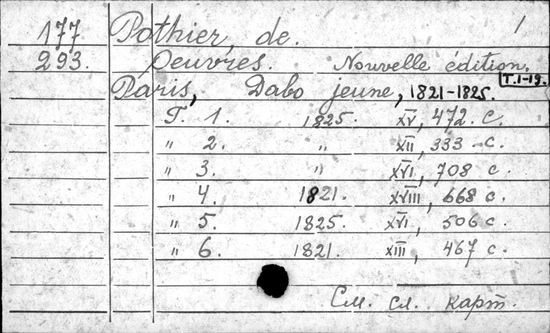 177 Pothier, de. 1
293. Oeuvres. Nouvelle édition.
T.1-19.
Paris, Dabo jeune, 1821-1825.
T. 1. 1825. XV, 472. с.
" 2. " XII, 333 с.
" 3. " XVI, 708 с.
" 4. 1821. XVIII, 668 с.
" 5. 1825. XVI, 506 с.
" 6. 1821. XIII, 467 с.
См. сл. карт.